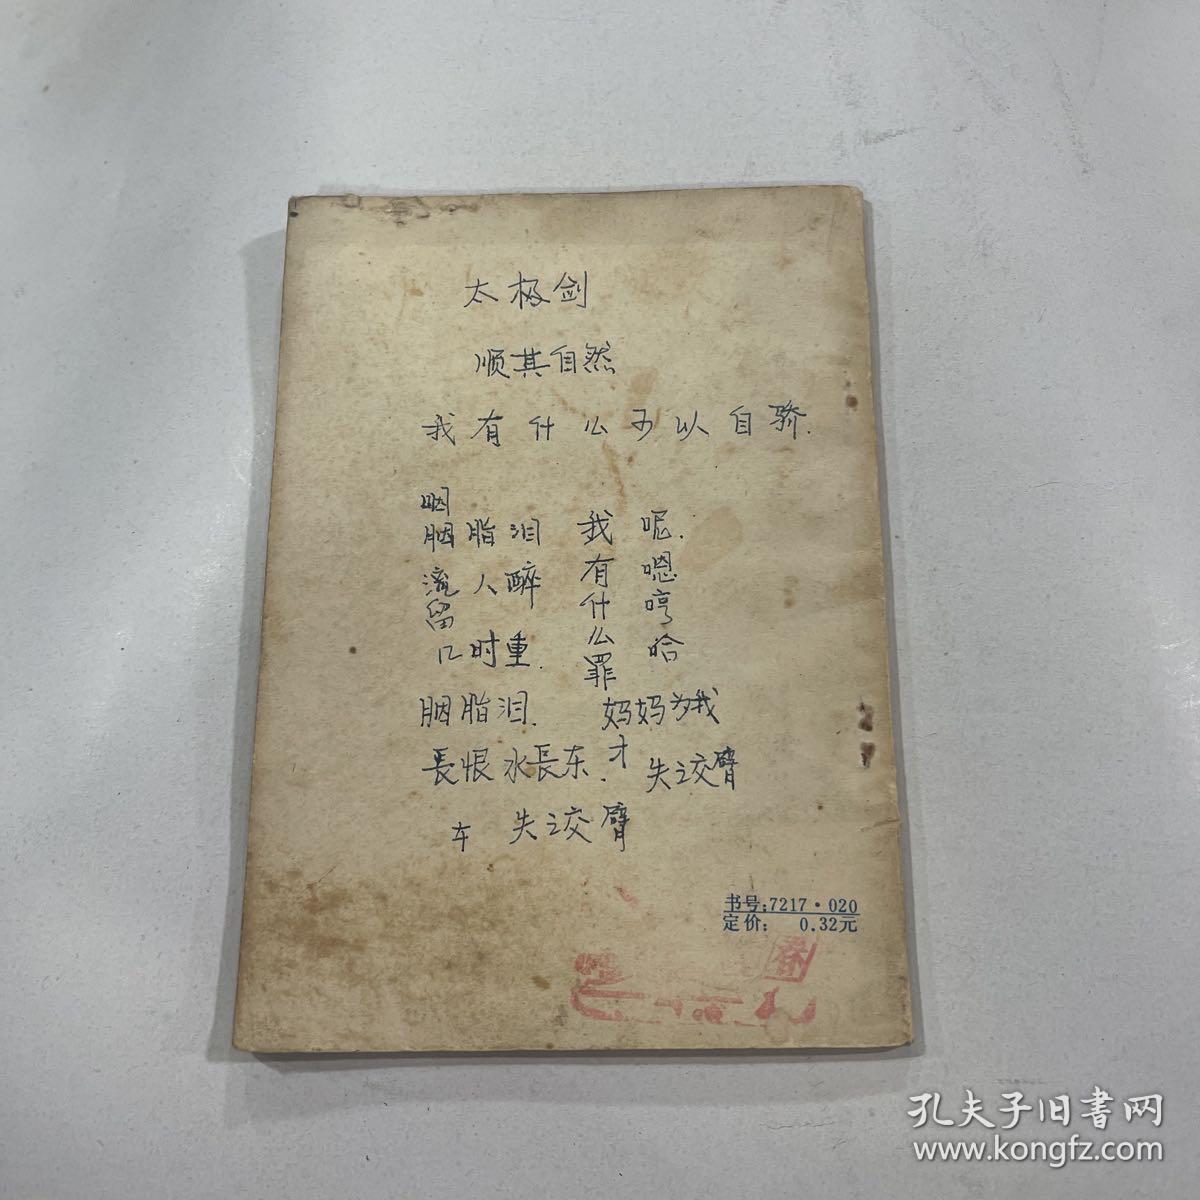 太极剑
顺其自然
我有什么可以自骄.
咽
胭脂泪
流人醉
留
几时重.
胭脂泪.
長恨水長东.
我有什么罪
呢.
嗯
哼
哈
妈妈为我
才
失之交臂
车 失之交臂
书号:7217·020
定价: 0.32元
春
孔夫子旧書网
www.kongfz.com